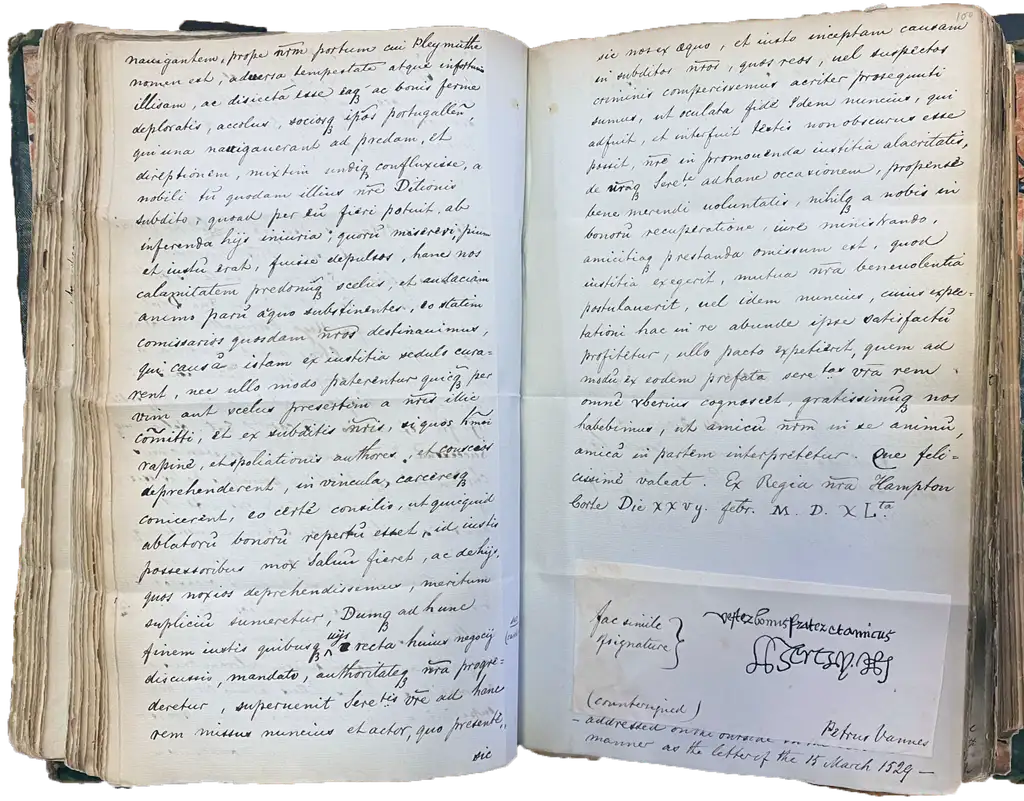 nauigantem, prope nr̃m portum cui Pleymuthe
nomen est, aduersa tempestate atque infortunio
illisam, ac disiectã esse eaqꝫ ac bonis ferme
deploratis, accolas, sociosqꝫ ip̃os portugalleñ,
qui una nauigauerant ad predam, et
direptionem, mixtim undiqꝫ confluxisse, a
nobili tũ quodam illius nr̃e Ditionis
subdito, quoad per eũ fieri potuit, ab
inferenda hijs iniuria, quorũ misereri, pium
et iustũ erat, fuisse depulsos, hanc nos
calamitatem predonũqꝫ scelus, et audaciam
animo parũ aquo subsfinentes, eo statim
comissarios quosdam nr̃os destinauimus,
qui causã istam ex iustitia sedulo cura-
rent, nec ullo modo paterentur quicqꝫ per
vim aut scelus presertim a nr̃is illic
cõmitti, et ex subditis nr̃is, si quos hmõi
rapine, et spoliationis authores, et conscios
deprehenderent, in vincula, carceresqꝫ
conicerent, eo certe consilio, ut quicquid
ablatorũ bonorũ repertũ esset, id iustis
possessoribus mox saluũ fieret, ac de hijs
quos noxios deprehendissemus, meritum
supliciũ sumeretur, Dumqꝫ ad hunc
finem iustis quibusqꝫ uijs recta huius negocij
discussio, mandato, authoritateqꝫ nr̃a progre-
deretur, superuenit Sere^tis vr̃e ad hanc
rem missus nuncius et actor, quo presentẽ,
sic
100
sic nos ex æquo, et iusto inceptam causam
in subditos nr̃os, quos reos, uel suspectos
criminis comperissemus acriter prosequuti
sumus, ut oculata fide Idem nuncius, qui
adfuit, et interfuit testis non obscurus esse
possit, nr̃e in promouenda iustitia alacritatis,
de nr̃aqꝫ Sere^te ad hanc occasionem, propense
bene merendi uoluntatis, nihilqꝫ a nobis in
bonorũ recuperatione, iure ministrando,
amicitiaqꝫ prestanda omissum est, quod
iustitia exegerit, mutua nr̃a beneuolentia
postulauerit, uel idem nuncius, cuius expec-
tationi hac in re abunde ipse satisfactũ
profitetur, ullo pacto expetierit, quem ad
modũ ex eodem prefata sere^tas vr̃a rem
omnẽ vberius cognoscet, gratissimũqꝫ nos
habebimus, ut amicũ nr̃m in se animũ,
amicã in partem interpretetur. Que feli-
cissime valeat. Ex Regia nr̃a Hampton
Corte Die xxvij. febr. M. D. X L^ta.
fac simile
of signature }
vester bonus frater et amicus
(countersigned)
Petrus Vannes
– addressed on the outside in the
manner as the letter of the 15 March 1529 –